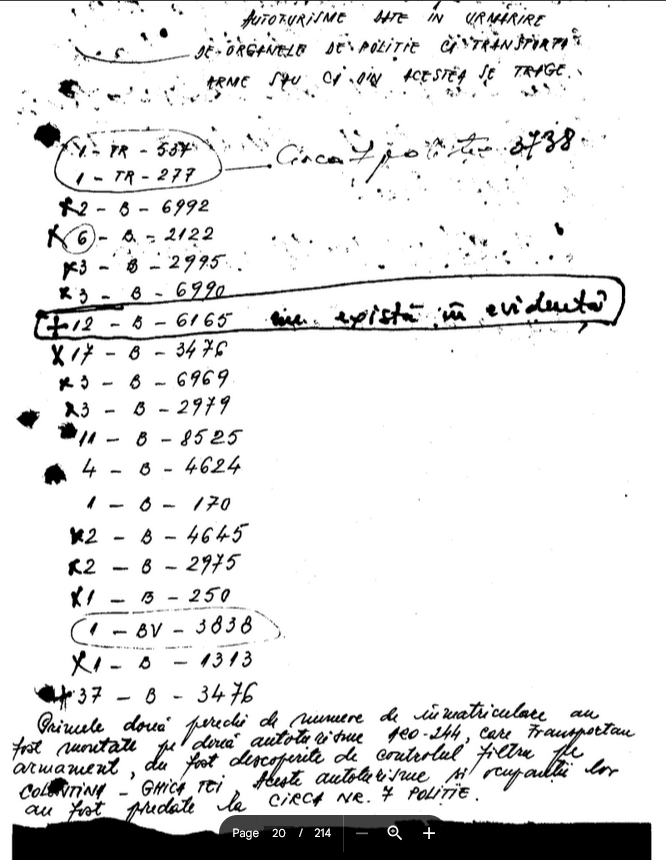 AUTOTURISME DATE IN URMARIRE
DE ORGANELE DE POLITIE CA TRANSPORTA
ARME SAU CA DIN ACESTEA SE TRAGE.
1 - TR - 537
1 - TR - 277
Circa 7 politie 3738
x2 - B - 6992
x 6 - B - 2122
x3 - B - 2995
x3 - B - 6990
+12 - B - 6165 nu există în evidentă
x17 - B - 3476
x3 - B - 6969
x3 - B - 2979
11 - B - 8525
4 - B - 4624
1 - B - 170
x2 - B - 4645
x2 - B - 2975
x1 - B - 250
1 - BV - 3838
x1 - B - 1313
+37 - B - 3476
Primele două perechi de numere de inmatriculare au
fost montate pe două autoturisme ARO-244, care transportau
armament, au fost descoperite de controlul filtru pe
COLENTINA - GHICA TEI. Aceste autoturisme si ocupantii lor
au fost predate la CIRCA NR. 7 POLITIE.
Page 20 / 214